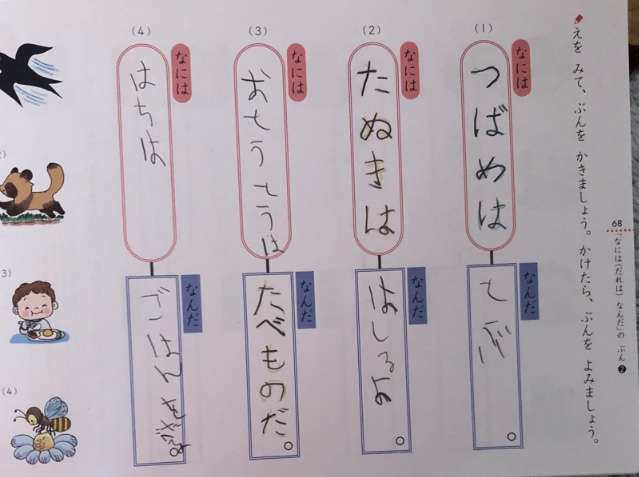 68
「なには（だれは） なんだ」の ぶん❷
えを みて、ぶんを かきましょう。かけたら、ぶんを よみましょう。
(1)
なには
つばめは
なんだ
とぶ
。
(2)
なには
たぬきは
なんだ
はしるよ
。
(3)
なには
おとうとうは
なんだ
たべものだ。
(4)
なには
はちは
なんだ
ごはんを
。
(3)
(4)